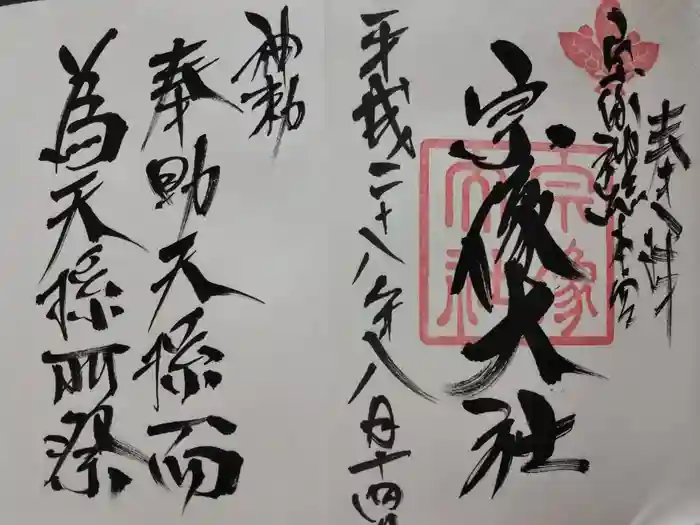 奉拝
宗像神社中津宮
宗像大社
宗像大社
平成二十八年八月十四日
神勅
奉助天孫而
為天孫所祭